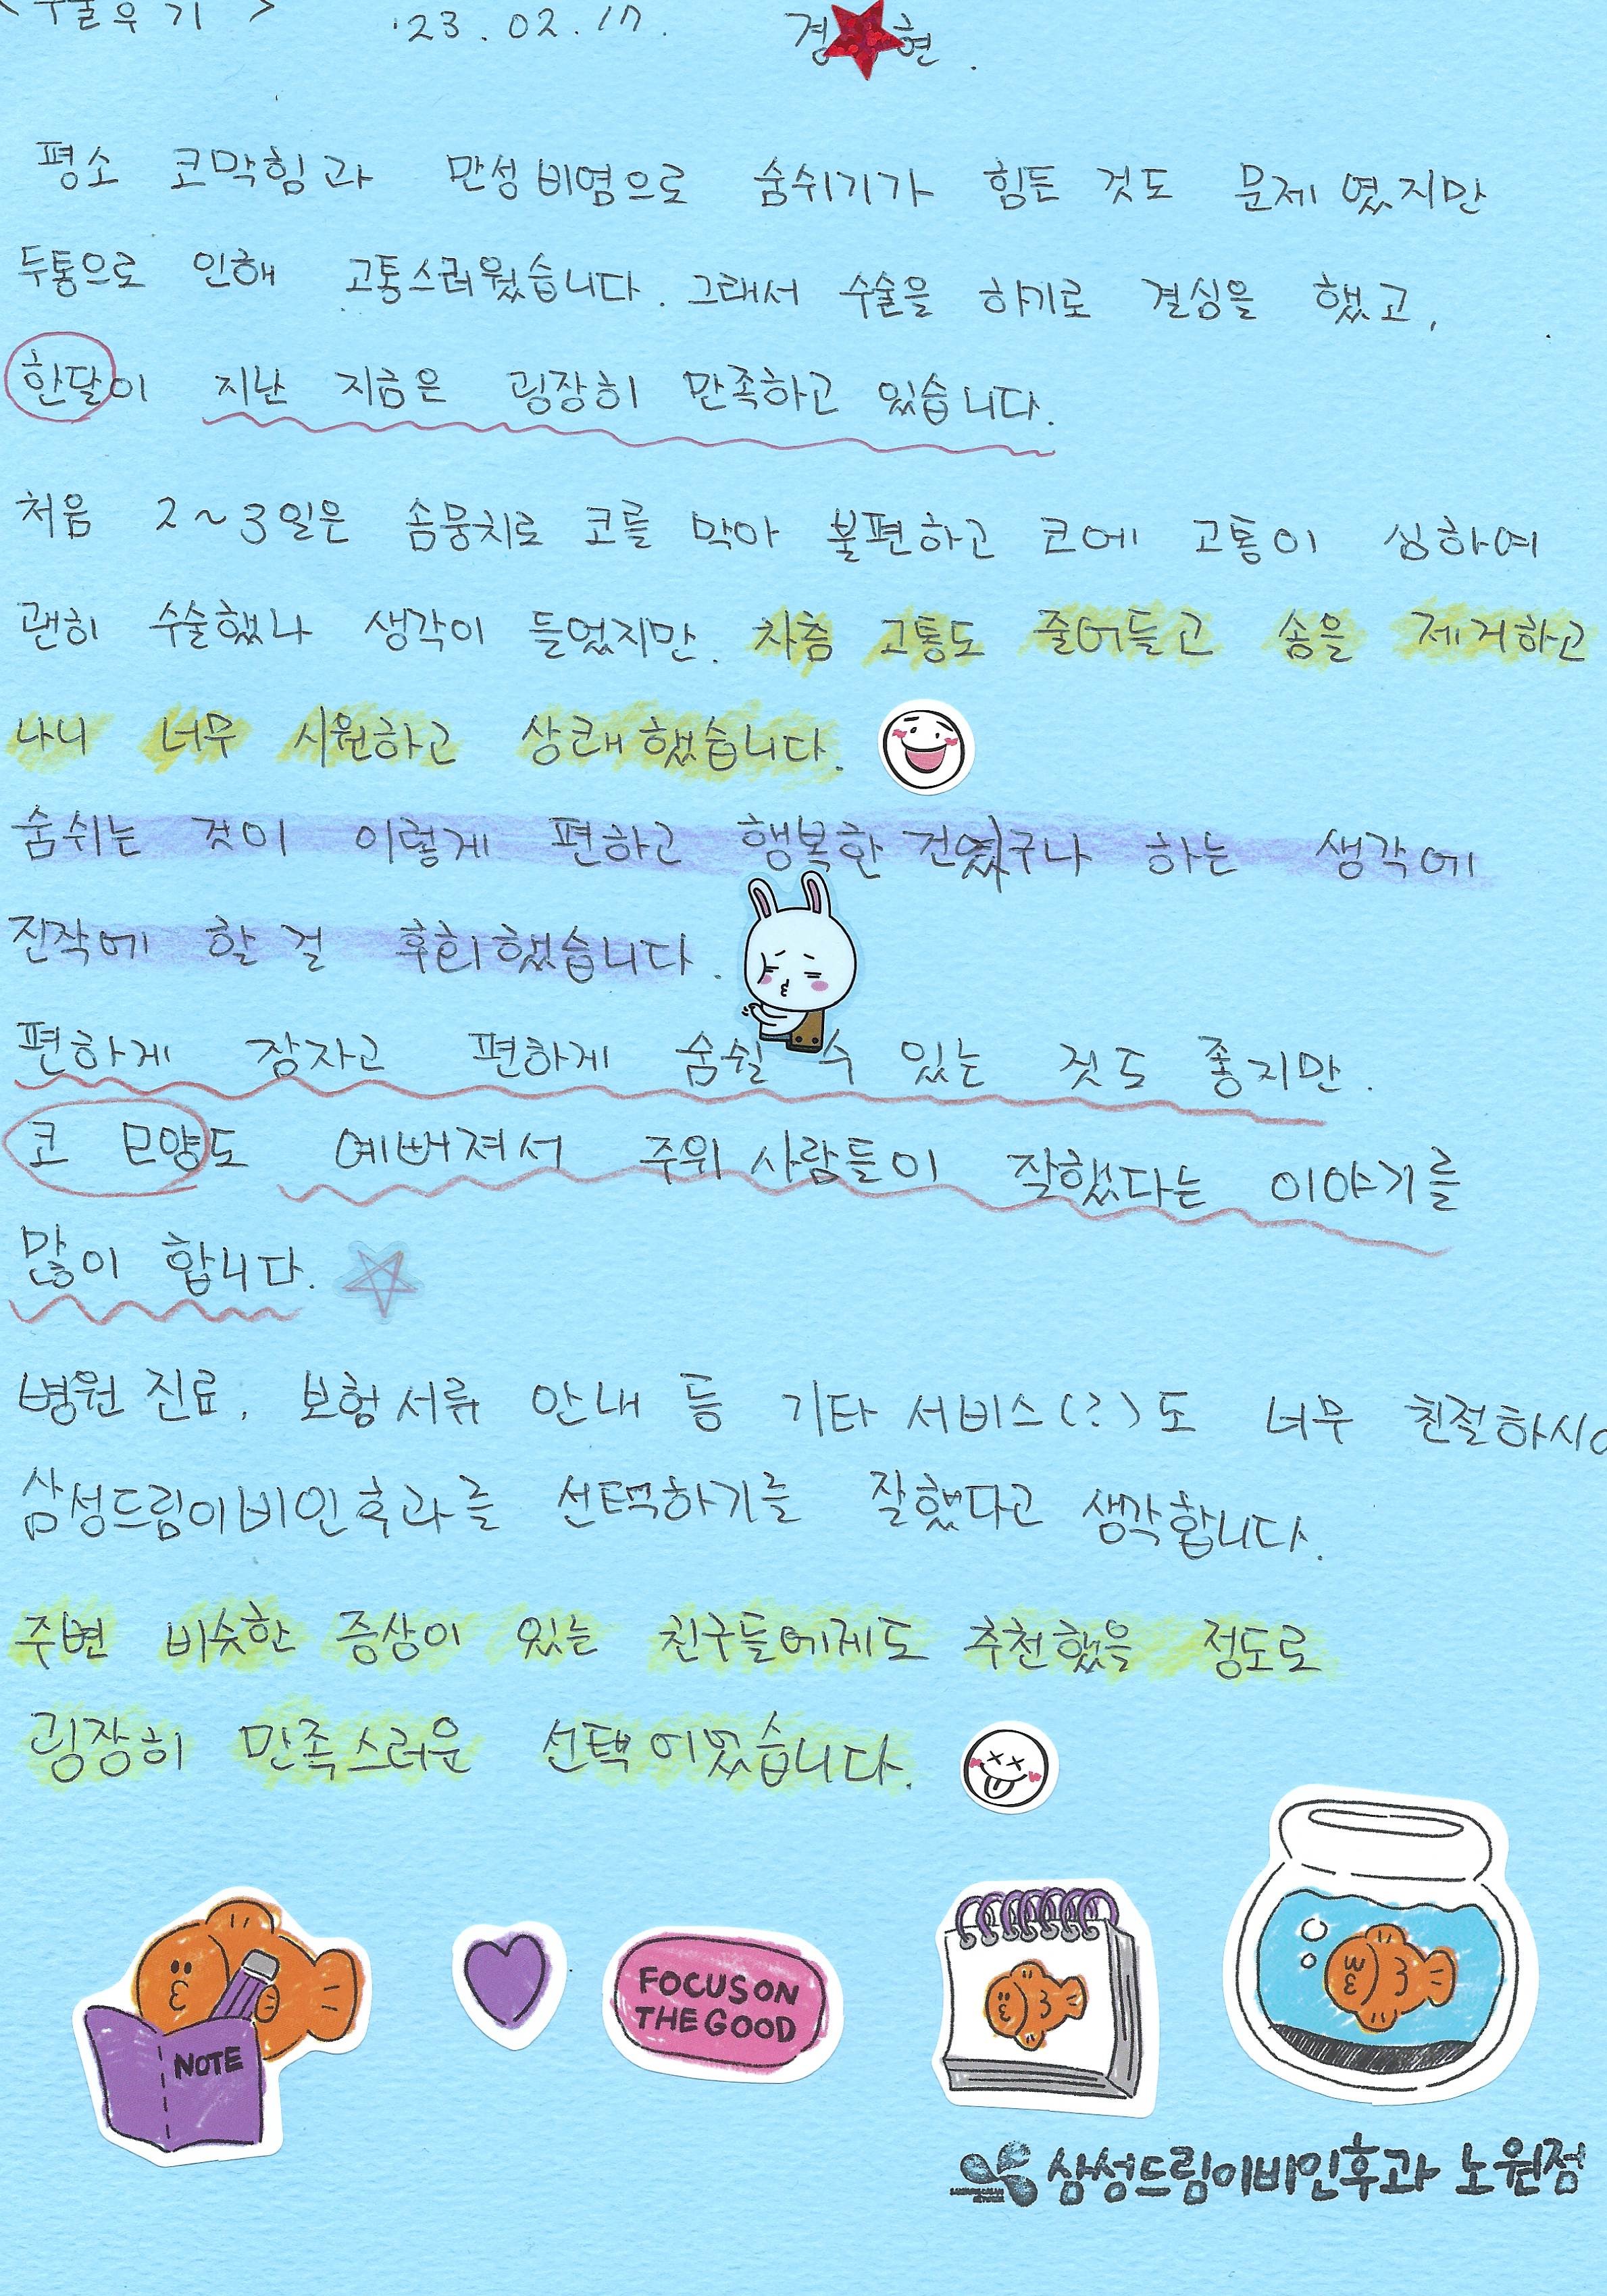 <수술후기> '23.02.17. 경 현.
평소 코막힘과 만성비염으로 숨쉬기가 힘든 것도 문제였지만
두통으로 인해 고통스러웠습니다. 그래서 수술을 하기로 결심을 했고,
한달이 지난 지금은 굉장히 만족하고 있습니다.
처음 2~3일은 솜뭉치로 코를 막아 불편하고 코에 고통이 심하여
괜히 수술했나 생각이 들었지만. 차츰 고통도 줄어들고 솜을 제거하고
나니 너무 시원하고 상쾌했습니다.
숨쉬는 것이 이렇게 편하고 행복한 건였구나 하는 생각에
진작에 할 걸 후회했습니다.
편하게 잠자고 편하게 숨쉴 수 있는 것도 좋지만.
코 모양도 예뻐져서 주위 사람들이 잘했다는 이야기를
많이 합니다.
병원 진료. 보험서류 안내 등 기타 서비스(?)도 너무 친절하시
삼성드림이비인후과를 선택하기를 잘했다고 생각합니다.
주변 비슷한 증상이 있는 친구들에게도 추천했을 정도로
굉장히 만족스러운 선택이었습니다.
NOTE
FOCUS ON
THE GOOD
삼성드림이비인후과 노원점